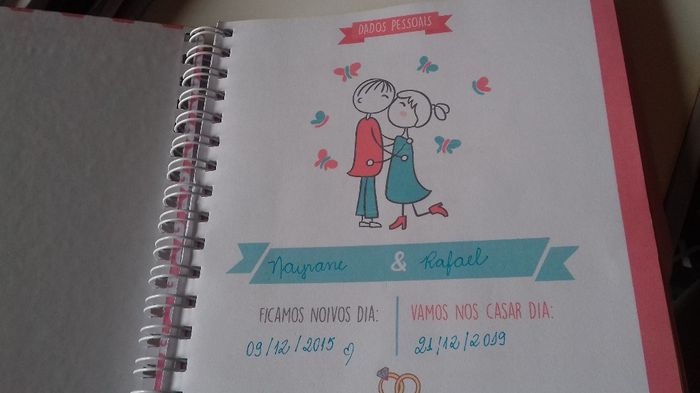 DADOS PESSOAIS
Nayrane & Rafael
FICAMOS NOIVOS DIA: VAMOS NOS CASAR DIA:
09/12/2015 21/12/2019